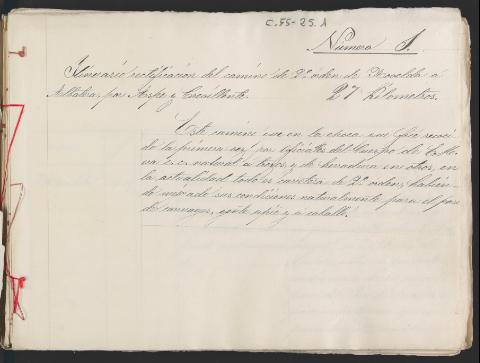 C.75-25.A
Numero 1.
Itinerario rectificación del camino de 2º orden de Novelda a
Albatera, por Aspe y Crevillente. 27 Kilometros.
Este camino que en la época que fué reconoci-
do la primera vez por oficiales del Cuerpo de E. M. era
natural a trozos y de herradura en otros, en
la actualidad todo es carretera de 2º orden, habien-
do mejorado sus condiciones naturalmente para el paso
de carruajes, gente a pie y a caballo.